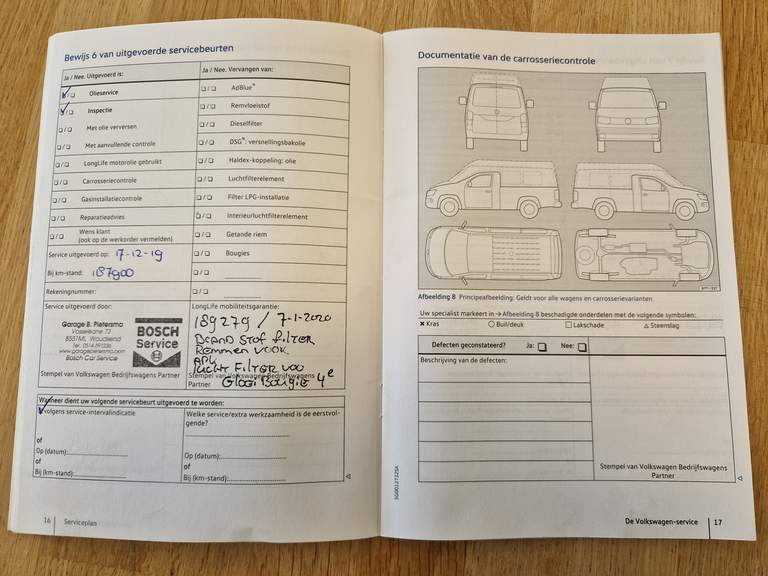 Bewijs 6 van uitgevoerde servicebeurten
Ja / Nee, Uitgevoerd is:
Ja / Nee, Vervangen van:
❑/❑ Olieservice
❑/❑ AdBlue®
❑/❑ Inspectie
❑/❑ Remvloeistof
❑/❑ Met olie verversen
❑/❑ Dieselfilter
❑/❑ Met aanvullende controle
❑/❑ DSG®: versnellingsbakolie
❑/❑ LongLife motorolie gebruikt
❑/❑ Haldex-koppeling: olie
❑/❑ Carrosseriecontrole
❑/❑ Luchtfilterelement
❑/❑ Gasinstallatiecontrole
❑/❑ Filter LPG-installatie
❑/❑ Reparatieadvies
❑/❑ Interieurluchtfilterelement
❑/❑ Wens klant
(ook op de werkorder vermelden)
❑/❑ Getande riem
Service uitgevoerd op: 17-12-19
❑/❑ Bougies
Bij km-stand: 187900
❑/❑
Rekeningnummer:
❑/❑
Service uitgevoerd door:
Garage B. Pietersma
8551ML Woudsend
www.garagepietersma.com
Bosch Car Service
BOSCH
Service
Stempel van Volkswagen Bedrijfswagens
Partner
LongLife mobiliteitsgarantie:
189279 / 7-1-2020
Brand stof filter
Remmen voor
APK
Lucht Filter voo
Stempel van Volkswagen Bedrijfswagens
Partner
Gloei Bougie 4e
Wanneer dient uw volgende servicebeurt uitgevoerd te worden:
volgens service-intervalindicatie
of
Op (datum):
of
Bij (km-stand):
Welke service/extra werkzaamheid is de eerstvol-
gende?
Op (datum):
of
Bij (km-stand):
16 Serviceplan
Documentatie van de carrosseriecontrole
Afbeelding 8 Principeafbeelding: Geldt voor alle wagens en carrosserievarianten
Uw specialist markeert in → Afbeelding 8 beschadigde onderdelen met de volgende symbolen:
✖ Kras
○ Buil/deuk
□ Lakschade
△ Steenslag
Defecten geconstateerd? Ja: ❑ Nee: ❑
Beschrijving van de defecten:
Stempel van Volkswagen Bedrijfswagens
Partner
5G0012732SA
De Volkswagen-service 17